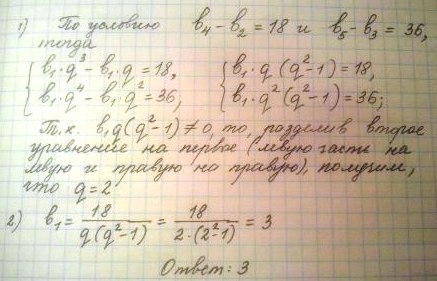 1) По условию b₄ - b₂ = 18 и b₅ - b₃ = 36,
тогда
{ b₁·q³ - b₁·q = 18, { b₁·q (q² - 1) = 18,
{ b₁·q⁴ - b₁·q² = 36; { b₁·q² (q² - 1) = 36;
Т.к. b₁q(q² - 1) ≠ 0, то, разделив второе
уравнение на первое (левую часть на
левую и правую на правую), получим,
что q = 2
2) b₁ = 18/(q(q² - 1)) = 18/(2·(2² - 1)) = 3
Ответ: 3